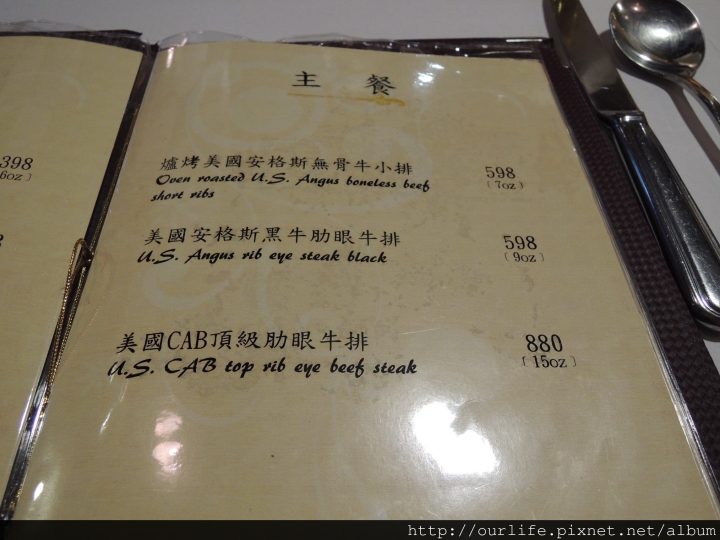 主 餐
爐烤美國安格斯無骨牛小排 598
Oven roasted U.S. Angus boneless beef (7oz)
short ribs
美國安格斯黑牛肋眼牛排 598
U.S. Angus rib eye steak black (9oz)
美國CAB頂級肋眼牛排 880
U.S. CAB top rib eye beef steak (15oz)
398
6oz)
http://ourlife.pixnet.net/album